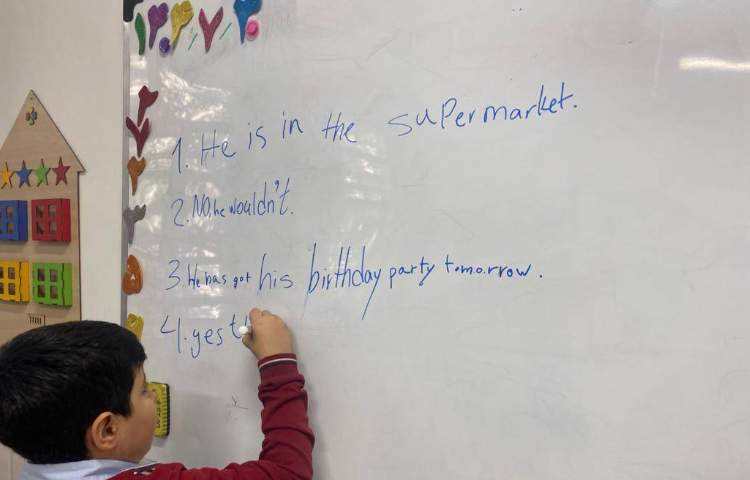 1. He is in the supermarket.
2. No, he wouldn't.
3. He has got his birthday party tomorrow.
4. yes t